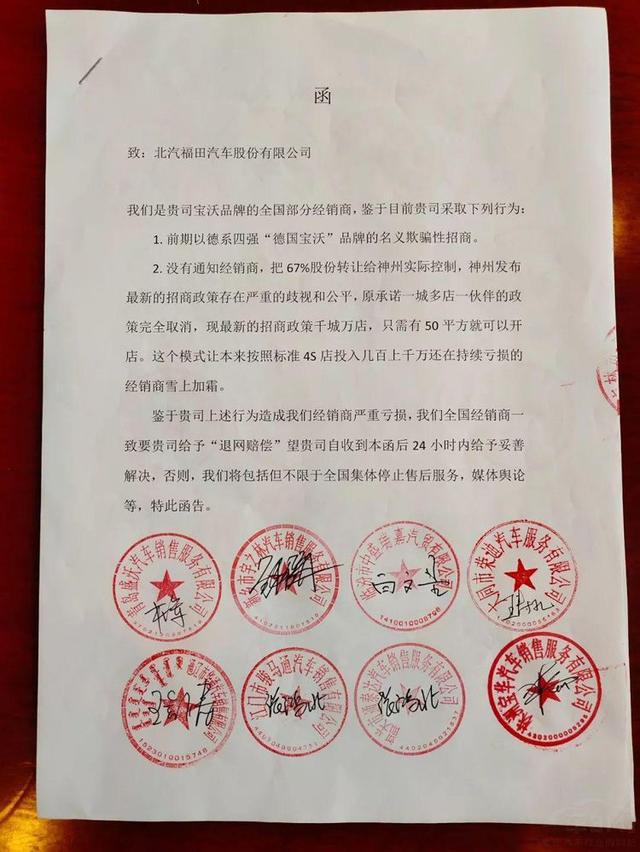 函
致：北汽福田汽车股份有限公司
我们是贵司宝沃品牌的全国部分经销商，鉴于目前贵司采取下列行为：
1. 前期以德系四强“德国宝沃”品牌的名义欺骗性招商。
2. 没有通知经销商，把 67%股份转让给神州实际控制，神州发布
最新的招商政策存在严重的歧视和公平，原承诺一城多店一伙伴的政
策完全取消，现最新的招商政策千城万店，只需有 50 平方就可以开
店。这个模式让本来按照标准 4S 店投入几百上千万还在持续亏损的
经销商雪上加霜。
鉴于贵司上述行为造成我们经销商严重亏损，我们全国经销商一
致要贵司给予“退网赔偿”望贵司自收到本函后 24 小时内给予妥善
解决，否则，我们将包括但不限于全国集体停止售后服务，媒体舆论
等，特此函告。
青岛盛沃汽车销售服务有限公司
临汾市中孟瑞嘉汽贸有限公司
1410010008798
大同市荣迪汽车服务有限公司
1523010015748
江门市骏马通汽车销售服务有限公司